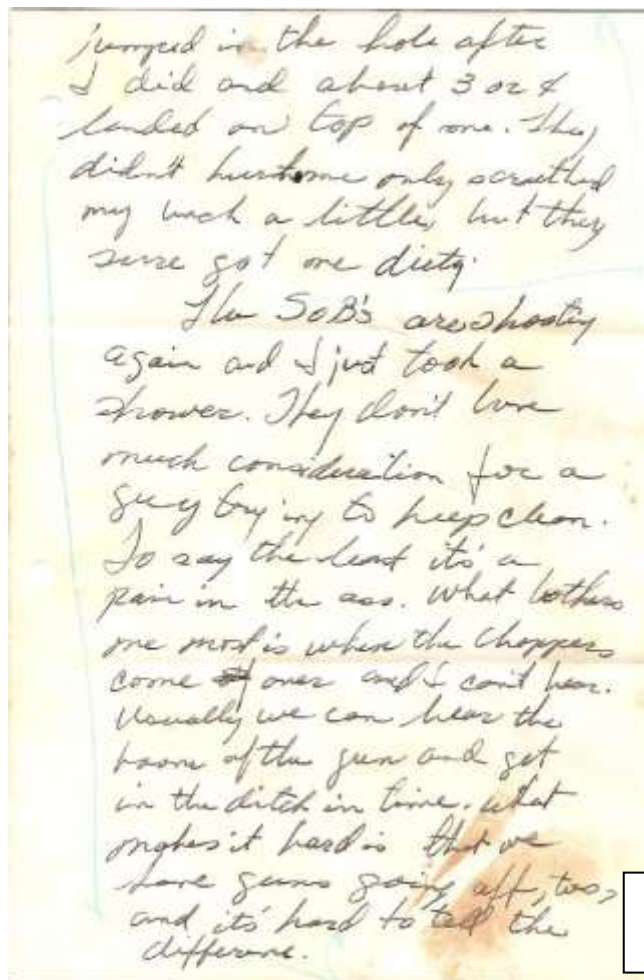 jumped in the hole after
I did and about 3 or 4
landed on top of me. They
didn't hurt me only scratched
my back a little, but they
sure got me dirty.
The SOB's are shooting
again and I just took a
shower. They don't have
much consideration for a
guy trying to keep clean.
To say the least it's a
pain in the ass. What bothers
me most is when the choppers
come over and I can't hear.
Usually we can hear the
boom of the gun and get
in the ditch in time. What
makes it hard is that we
have guns going off, too,
and it's hard to tell the
difference.